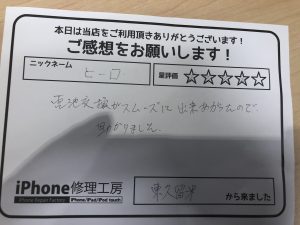 本日は当店をご利用頂きありがとうございます!
ご感想をお願いします!
ニックネーム ヒーロ 星評価 ☆☆☆☆☆
電池交換がスムーズに出来あがったので、
助かりました。
iPhone修理工房
iPhone Repair Factory iPhone/iPad/iPod touch
東久留米 から来ました